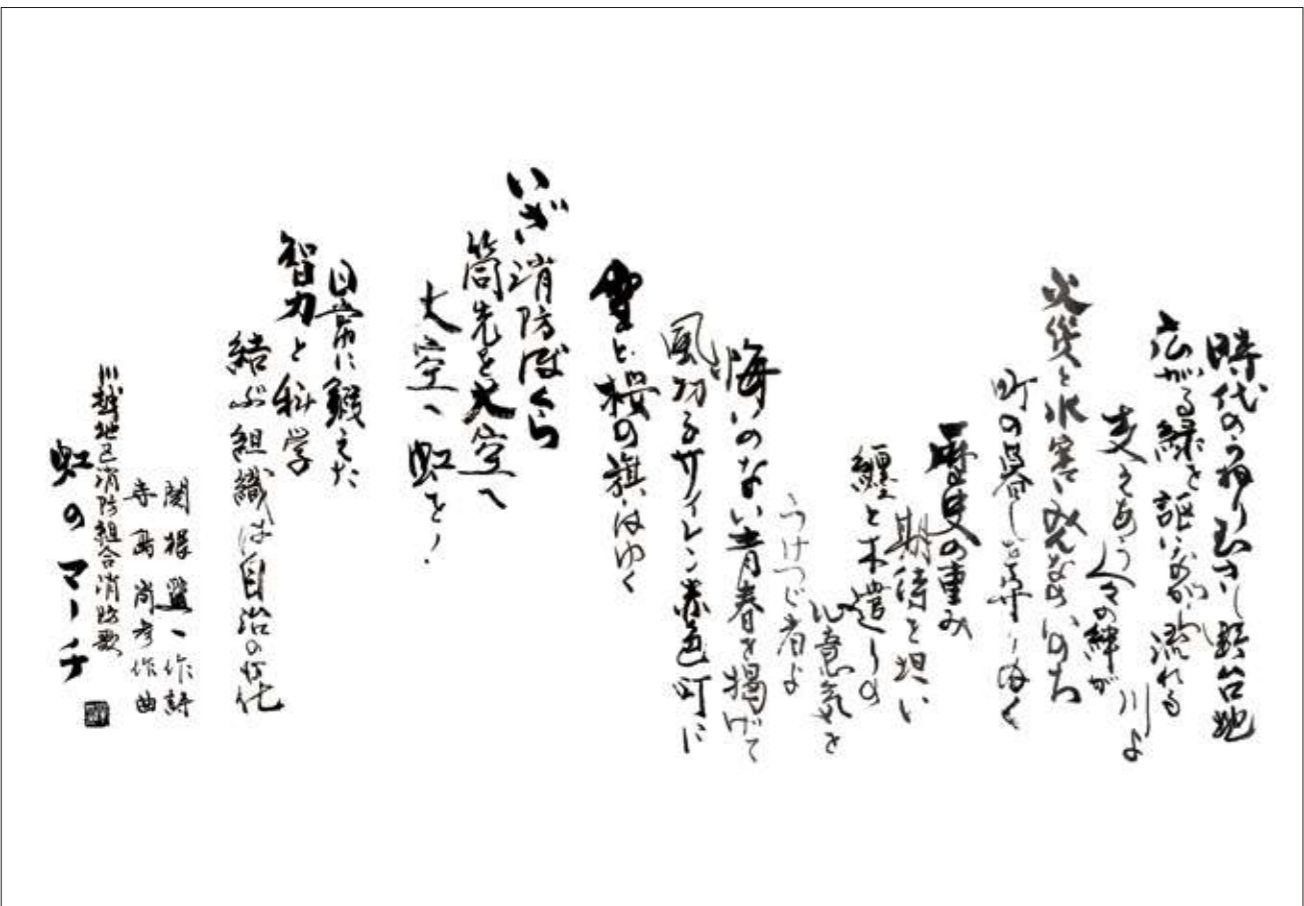 時代のうねりむさし野台地
広がる緑を謳いながら流れる
川よ
支えあう人々の絆が
火災と水害にみんなのいのち
町の暮しを守りゆく
歴史の重み
期待を担い
纏と木遣りの
心意気を
うけつぐ者よ
悔いのない青春を掲げて
風切るサイレン赤色灯に
雪と桜の旗はゆく
いざ消防ぼくら
筒先を大空へ
大空へ虹を！
日常に鍛えた
智力と科学
結ぶ組織は自治の灯化
関根 作詩
寺島尚彦作曲
川越地区消防組合消防歌
虹のマーチ